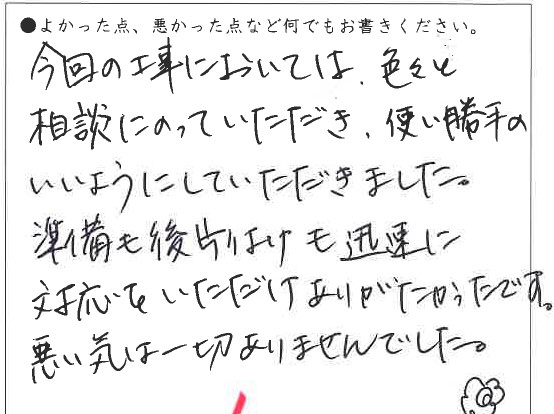 ●よかった点、悪かった点など何でもお書きください。
今回の工事においては、色々と
相談にのっていただき、使い勝手の
いいようにしていただきました。
準備も後片付けも迅速に
対応をいただけありがたかったです。
悪い気は一切ありませんでした。